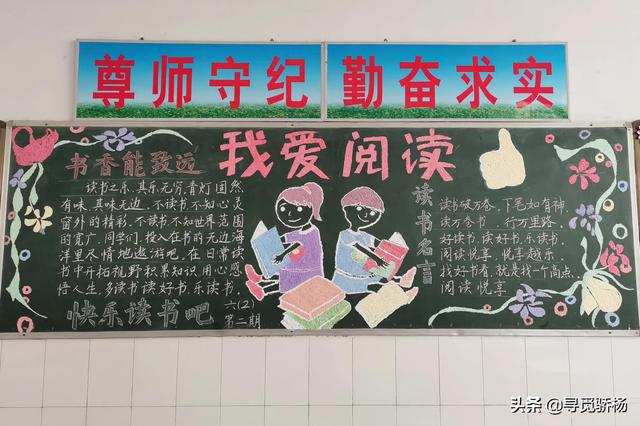 尊师守纪
勤奋求实
我爱阅读
书香能致远
读书之乐,其乐无穷,青灯固然
有味,其味无边,不读书不知心灵
窗外的精彩,不读书不知世界范围
的宽广,同学们,投入在书的无边海
洋里尽情地遨游吧,在日常读
书中开拓视野积累知识,用心感
悟人生,多读书读好书,乐读书。
快乐读书吧
六(2)
第二期
读书名言
读书破万卷,下笔如有神,
读万卷书,行万里路,
好读书,读好书,乐读书,
阅读悦享,悦享越乐,
找好书看,就是找一个高点,
阅读悦享
头条@寻觅骄杨